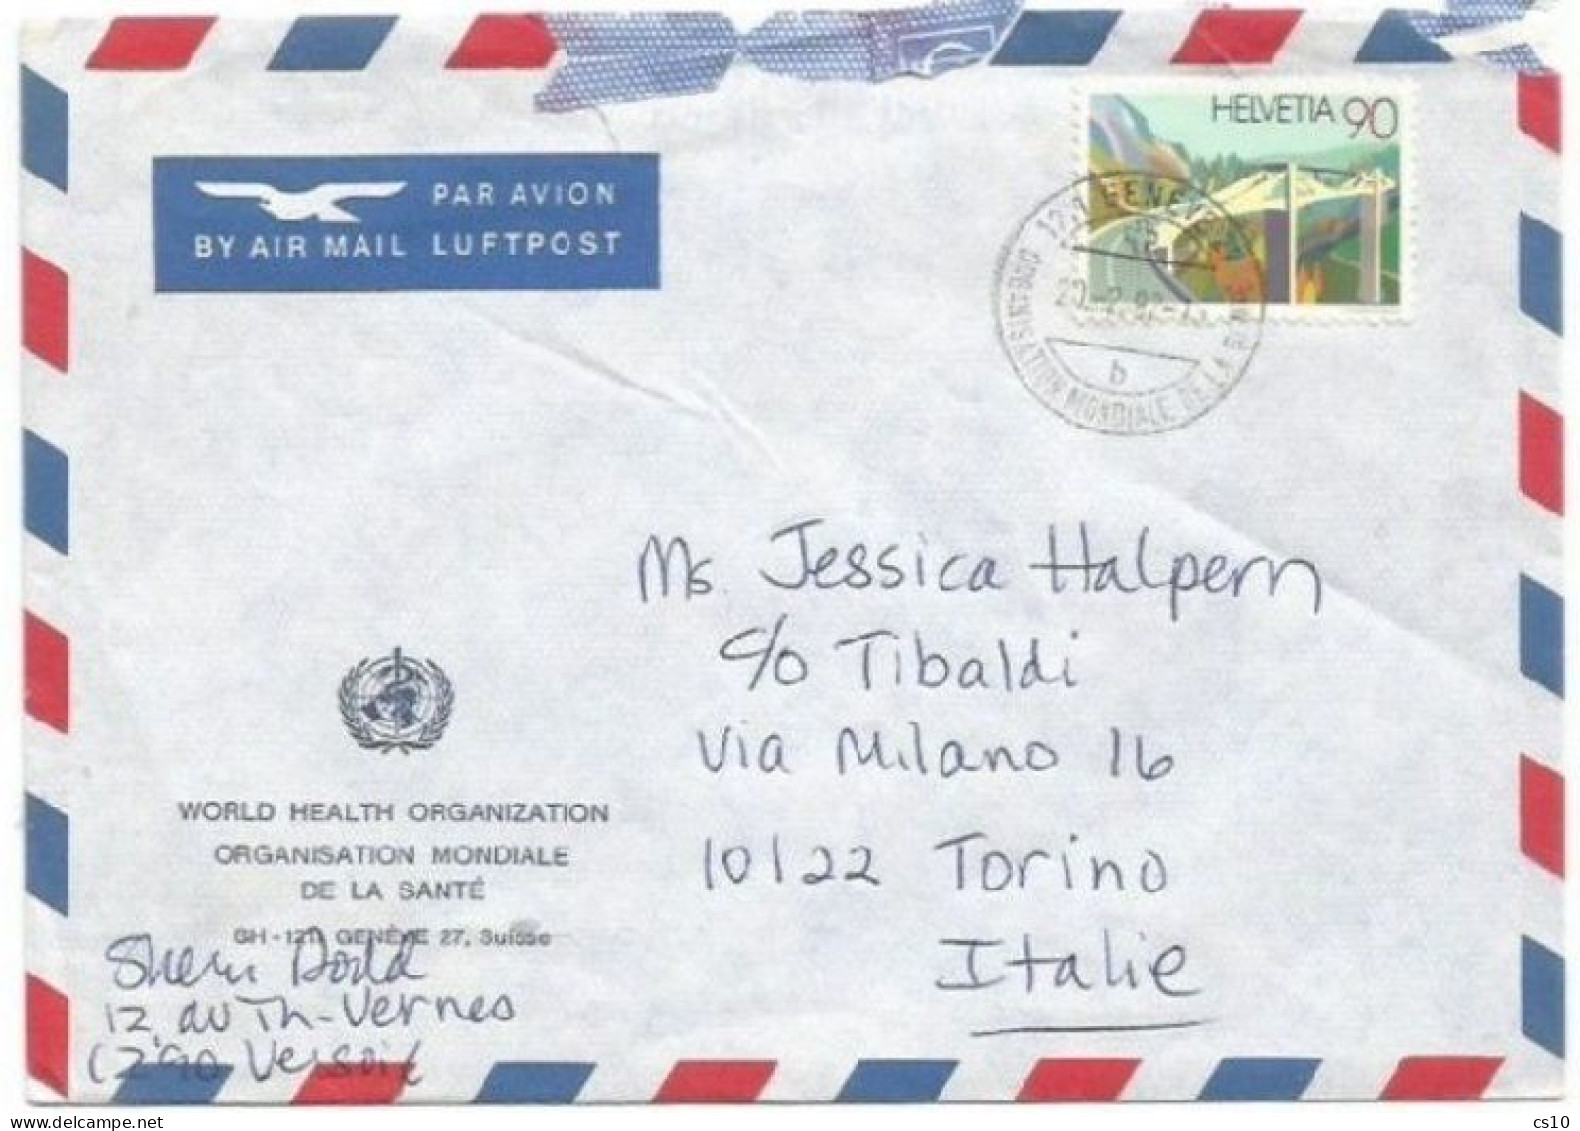 HELVETIA 90
PAR AVION
BY AIR MAIL LUFTPOST
GENÈVE
ORGANISATION MONDIALE DE LA
b
Ms. Jessica Halpern
c/o Tibaldi
Via Milano 16
10122 Torino
Italie
WORLD HEALTH ORGANIZATION
ORGANISATION MONDIALE
DE LA SANTÉ
CH-1211 GENÈVE 27, Suisse
Sherri Dodd
12 av Th-Vernes
1290 Versoix
delcampe.net
cs10